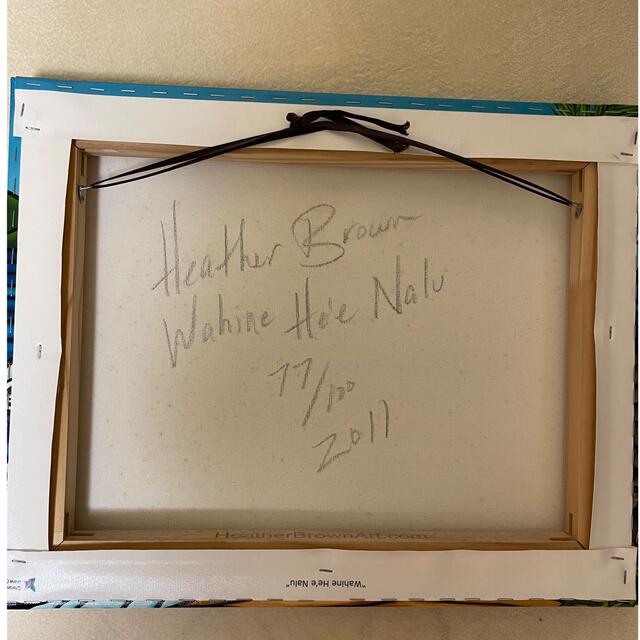 Heather Brown
Wahine He'e Nalu
77/100
2011
HeatherBrownArt.com
"Wahine He'e Nalu"